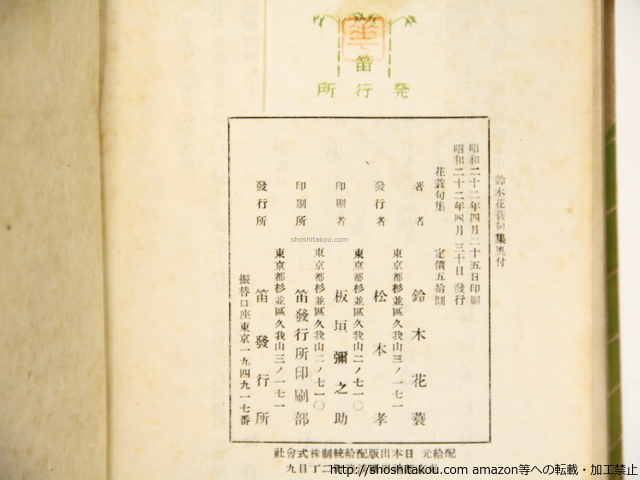 笛
発行所
鈴木花蓑句集奥付
昭和二十二年四月二十五日印刷
昭和二十二年四月三十日發行
花蓑句集 定價五拾圓
著者 鈴木花蓑
東京都杉並區久我山三ノ一七一
發行者 松本孝
東京都杉並區久我山二ノ七一〇
印刷者 板垣彌之助
東京都杉並區久我山二ノ七一〇
印刷所 笛發行所印刷部
東京都杉並區久我山三ノ一七一
發行所 笛發行所
振替口座東京一九四九一七番
配給元 日本出版配給統制株式會社
二丁目九
shoshitakou.com
http://shoshitakou.com amazon等への転載・加工禁止